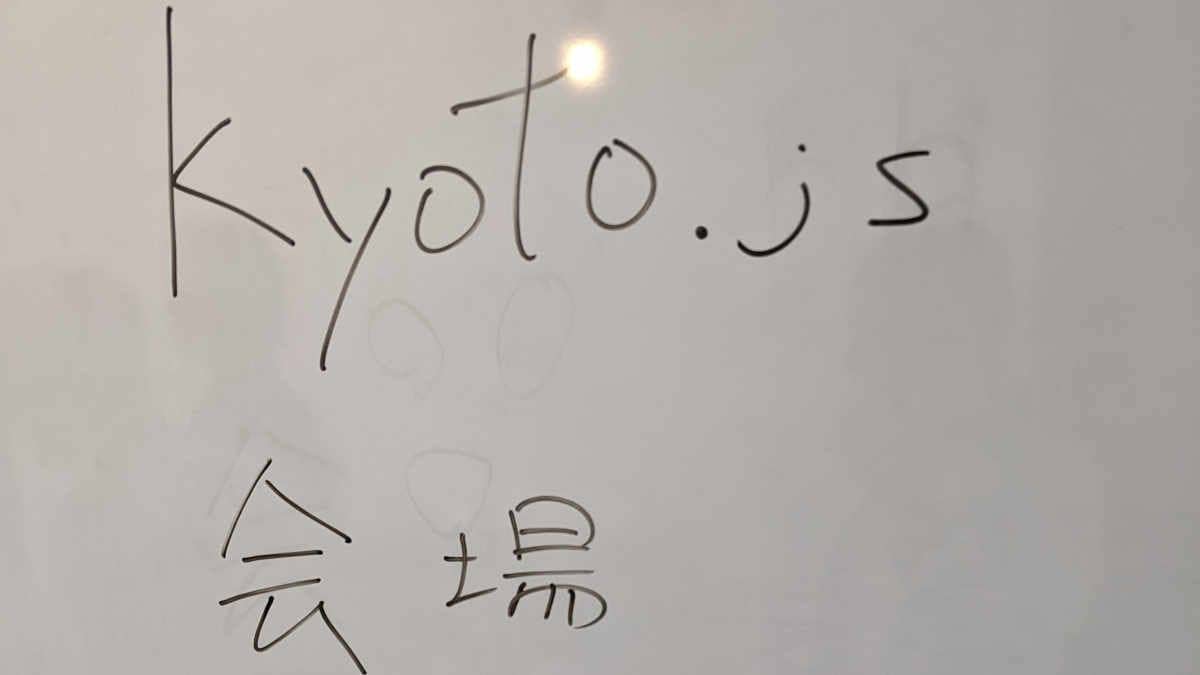 kyoto.js
会場